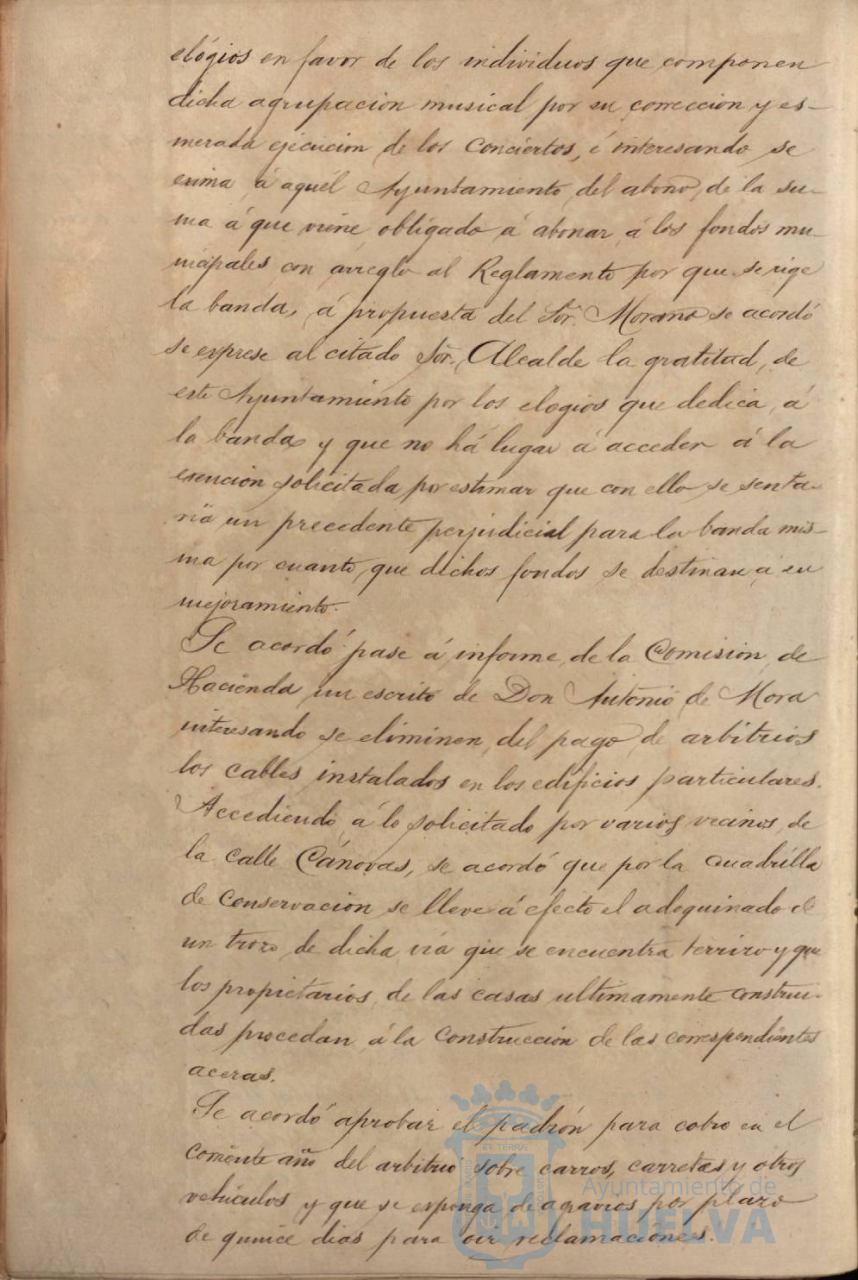 elógios en favor de los individuos que componen
dicha agrupación musical por su corrección y es-
merada ejecución de los conciertos, é interesando se
exima á aquél Ayuntamiento del abono de la su-
ma á que viene obligado á abonar á los fondos mu-
nicipales con arreglo al Reglamento por que se rige
la banda, á propuesta del Sor. Morano se acordó
se exprese al citado Sor. Alcalde la gratitud de
este Ayuntamiento por los elogios que dedica á
la banda y que no há lugar á acceder á la
exención solicitada por estimar que con ello se senta-
ría un precedente perjudicial para la banda mis-
ma por cuanto que dichos fondos se destinan á su
mejoramiento.
Se acordó pase á informe de la Comisión de
Hacienda un escrito de Don Antonio de Mora
interesando se eliminen del pago de arbitrios
los cables instalados en los edificios particulares.
Accediendo á lo solicitado por varios vecinos de
la calle Cánovas, se acordó que por la cuadrilla
de conservación se lleve á efecto el adoquinado de
un trozo de dicha vía que se encuentra terrizo y que
los propietarios de las casas ultimamente construi-
das procedan á la construcción de las correspondientes
aceras.
Se acordó aprobar el padrón para cobro en el
corriente año del arbitrio sobre carros, carretas y otros
vehículos y que se exponga de agravios por plazo
de quince dias para oir reclamaciones.
Ayuntamiento de
HUELVA